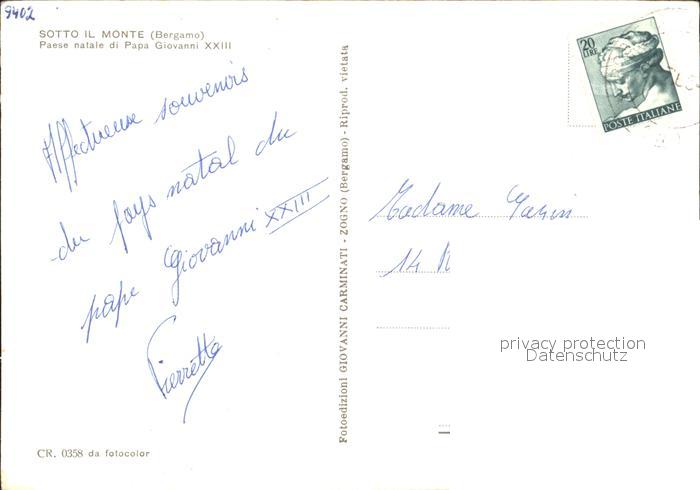 9402
SOTTO IL MONTE (Bergamo)
Paese natale di Papa Giovanni XXIII
Affectueux souvenirs
du pays natal du
pape Giovanni XXIII
Pierrette
CR. 0358 da fotocolor
Fotoedizioni GIOVANNI CARMINATI - ZOGNO (Bergamo) - Riprod. vietata
20
LIRE
POSTE ITALIANE
Madame
14
privacy protection
Datenschutz